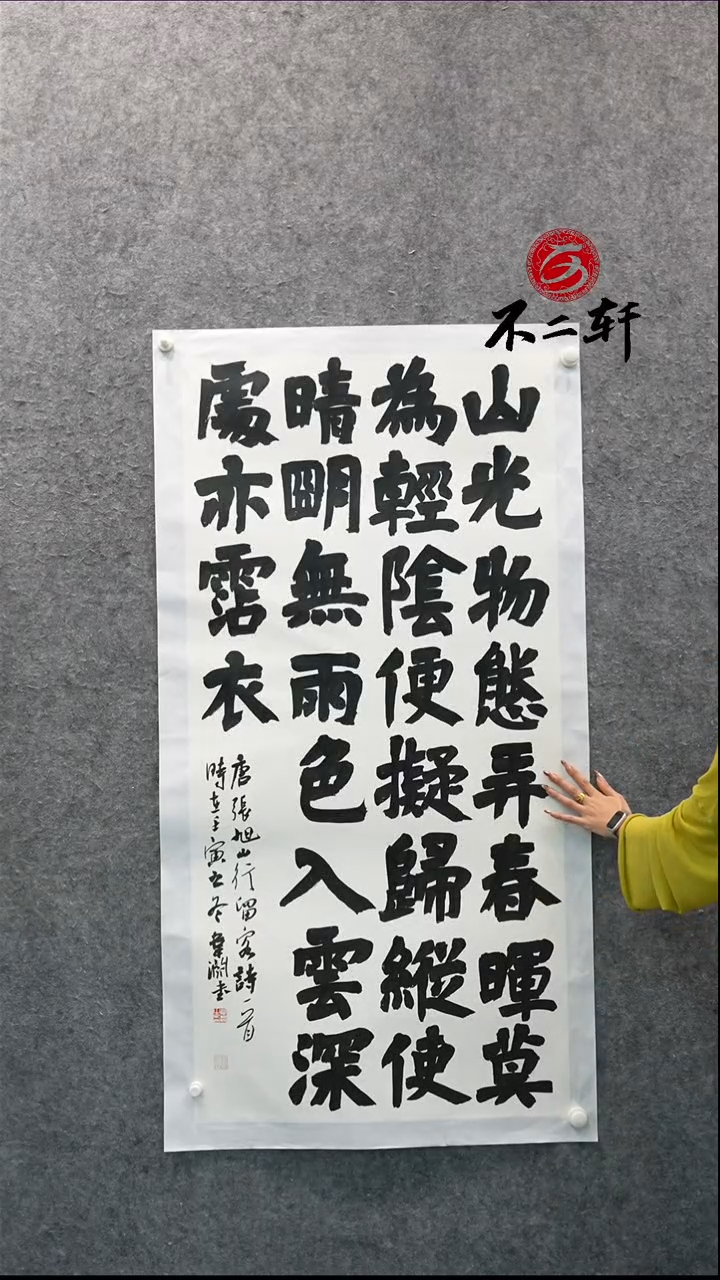 不二轩
山光物態弄春暉莫
為輕陰便擬歸縱使
晴朙無雨色入雲深
處亦霑衣
唐張旭山行留客詩一首
時在壬寅之冬